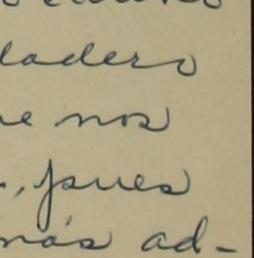 ladero
e nos
., pues
más ad-